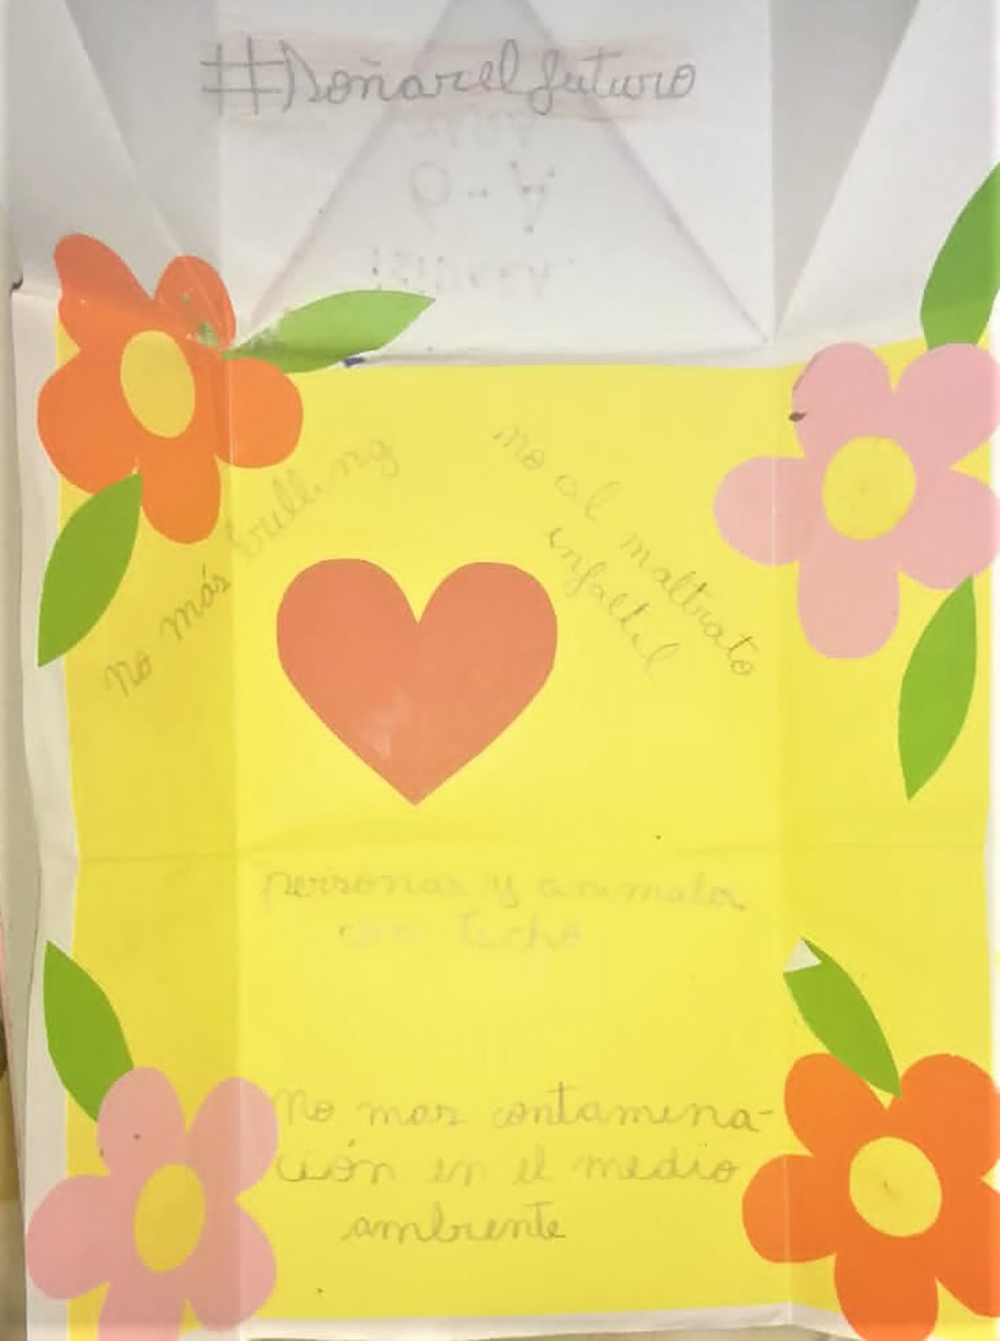 #Soñarelfuturo
no más bulling
no al maltrato
infaltil
personas y animales
con techo
No mas contamina-
ción en el medio
ambiente